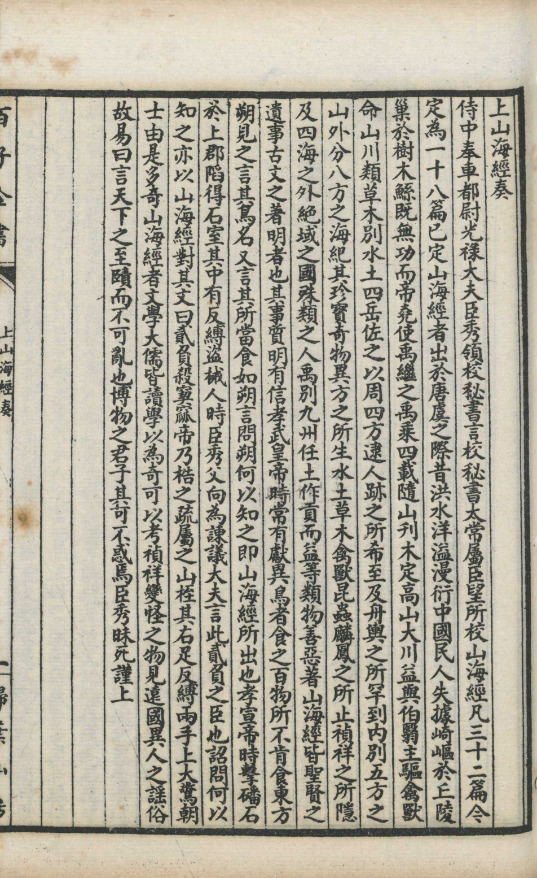 上山海經奏
侍中奉車都尉光祿大夫臣秀領校秘書言校秘書太常屬臣望所校山海經凡三十二篇今
定為一十八篇已定山海經者出於唐虞之際昔洪水洋溢漫衍中國民人失據崎嶇於丘陵
巢於樹木鯀既無功而帝堯使禹繼之禹乘四載隨山刊木定高山大川益與伯翳主驅禽獸
命山川類草木別水土四岳佐之以周四方逮人跡之所希至及舟輿之所罕到內別五方之
山外分八方之海紀其珍寶奇物異方之所生水土草木禽獸昆蟲麟鳳之所止禎祥之所隱
及四海之外絕域之國殊類之人禹別九州任土作貢而益等類物善惡著山海經皆聖賢之
遺事古文之著明者也其事質明有信孝武皇帝時常有獻異鳥者食之百物所不肯食東方
朔見之言其鳥名又言其所當食如朔言問朔何以知之即山海經所出也孝宣帝時擊磻石
於上郡陷得石室其中有反縛盜械人時臣秀父向為諫議大夫言此貳負之臣也詔問何以
知之亦以山海經對其文曰貳負殺窫窳帝乃梏之疏屬之山桎其右足反縛兩手上大驚朝
士由是多奇山海經者文學大儒皆讀學以為奇可以考禎祥變怪之物見遠國異人之謠俗
故易曰言天下之至賾而不可亂也博物之君子其可不惑焉臣秀昧死謹上
百子全書
上山海經奏
一掃葉山房